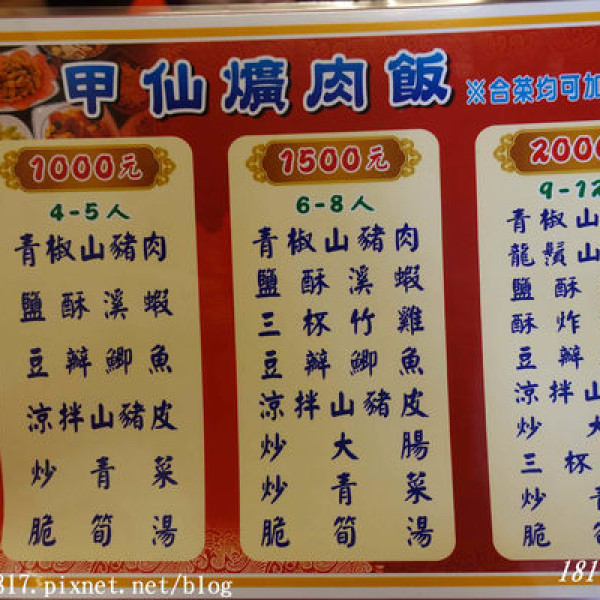 甲仙爌肉飯 ※合菜均可加
1000元
4-5人
青椒山豬肉
鹽酥溪蝦
豆瓣鯽魚
涼拌山豬皮
炒青菜
脆筍湯
1500元
6-8人
青椒山豬肉
鹽酥溪蝦
三杯竹雞
豆瓣鯽魚
涼拌山豬皮
炒大腸
炒青菜
脆筍湯
2000
9-12
青椒山
龍鬚山
鹽酥
酥炸
豆瓣
涼拌山
炒大
三杯
炒青
脆筍
817.pixnet.net/blog
181